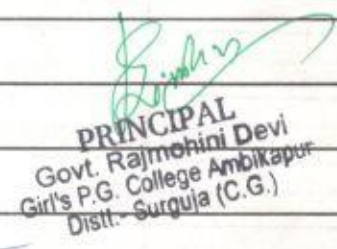 PRINCIPAL
Govt. Rajmohini Devi
Girl's P.G. College Ambikapur
Distt.- Surguja (C.G.)